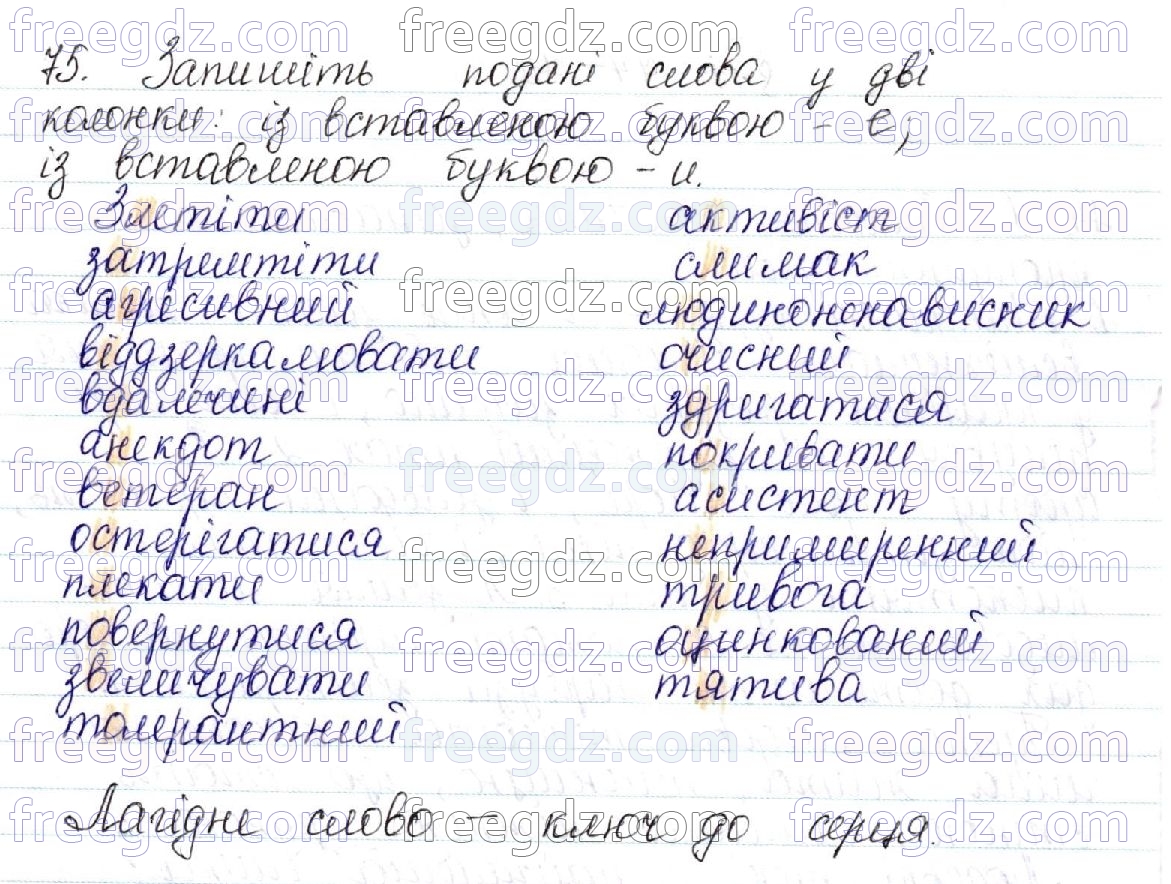 75. Запишіть подані слова у дві
колонки: із вставленою буквою - е;
із вставленою буквою - и.
Злетіти
затремтіти
агресивний
віддзеркалювати
вдалечині
анекдот
ветеран
остерігатися
плекати
повернутися
звеличувати
толерантний
активіст
слимак
людиноненависник
очисний
здригатися
покривати
асистент
непримиренний
тривога
оцинкований
тятива
Лагідне слово - ключ до серця.